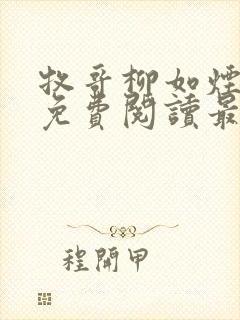 牧哥柳如煙
免費閱讀最
程開甲